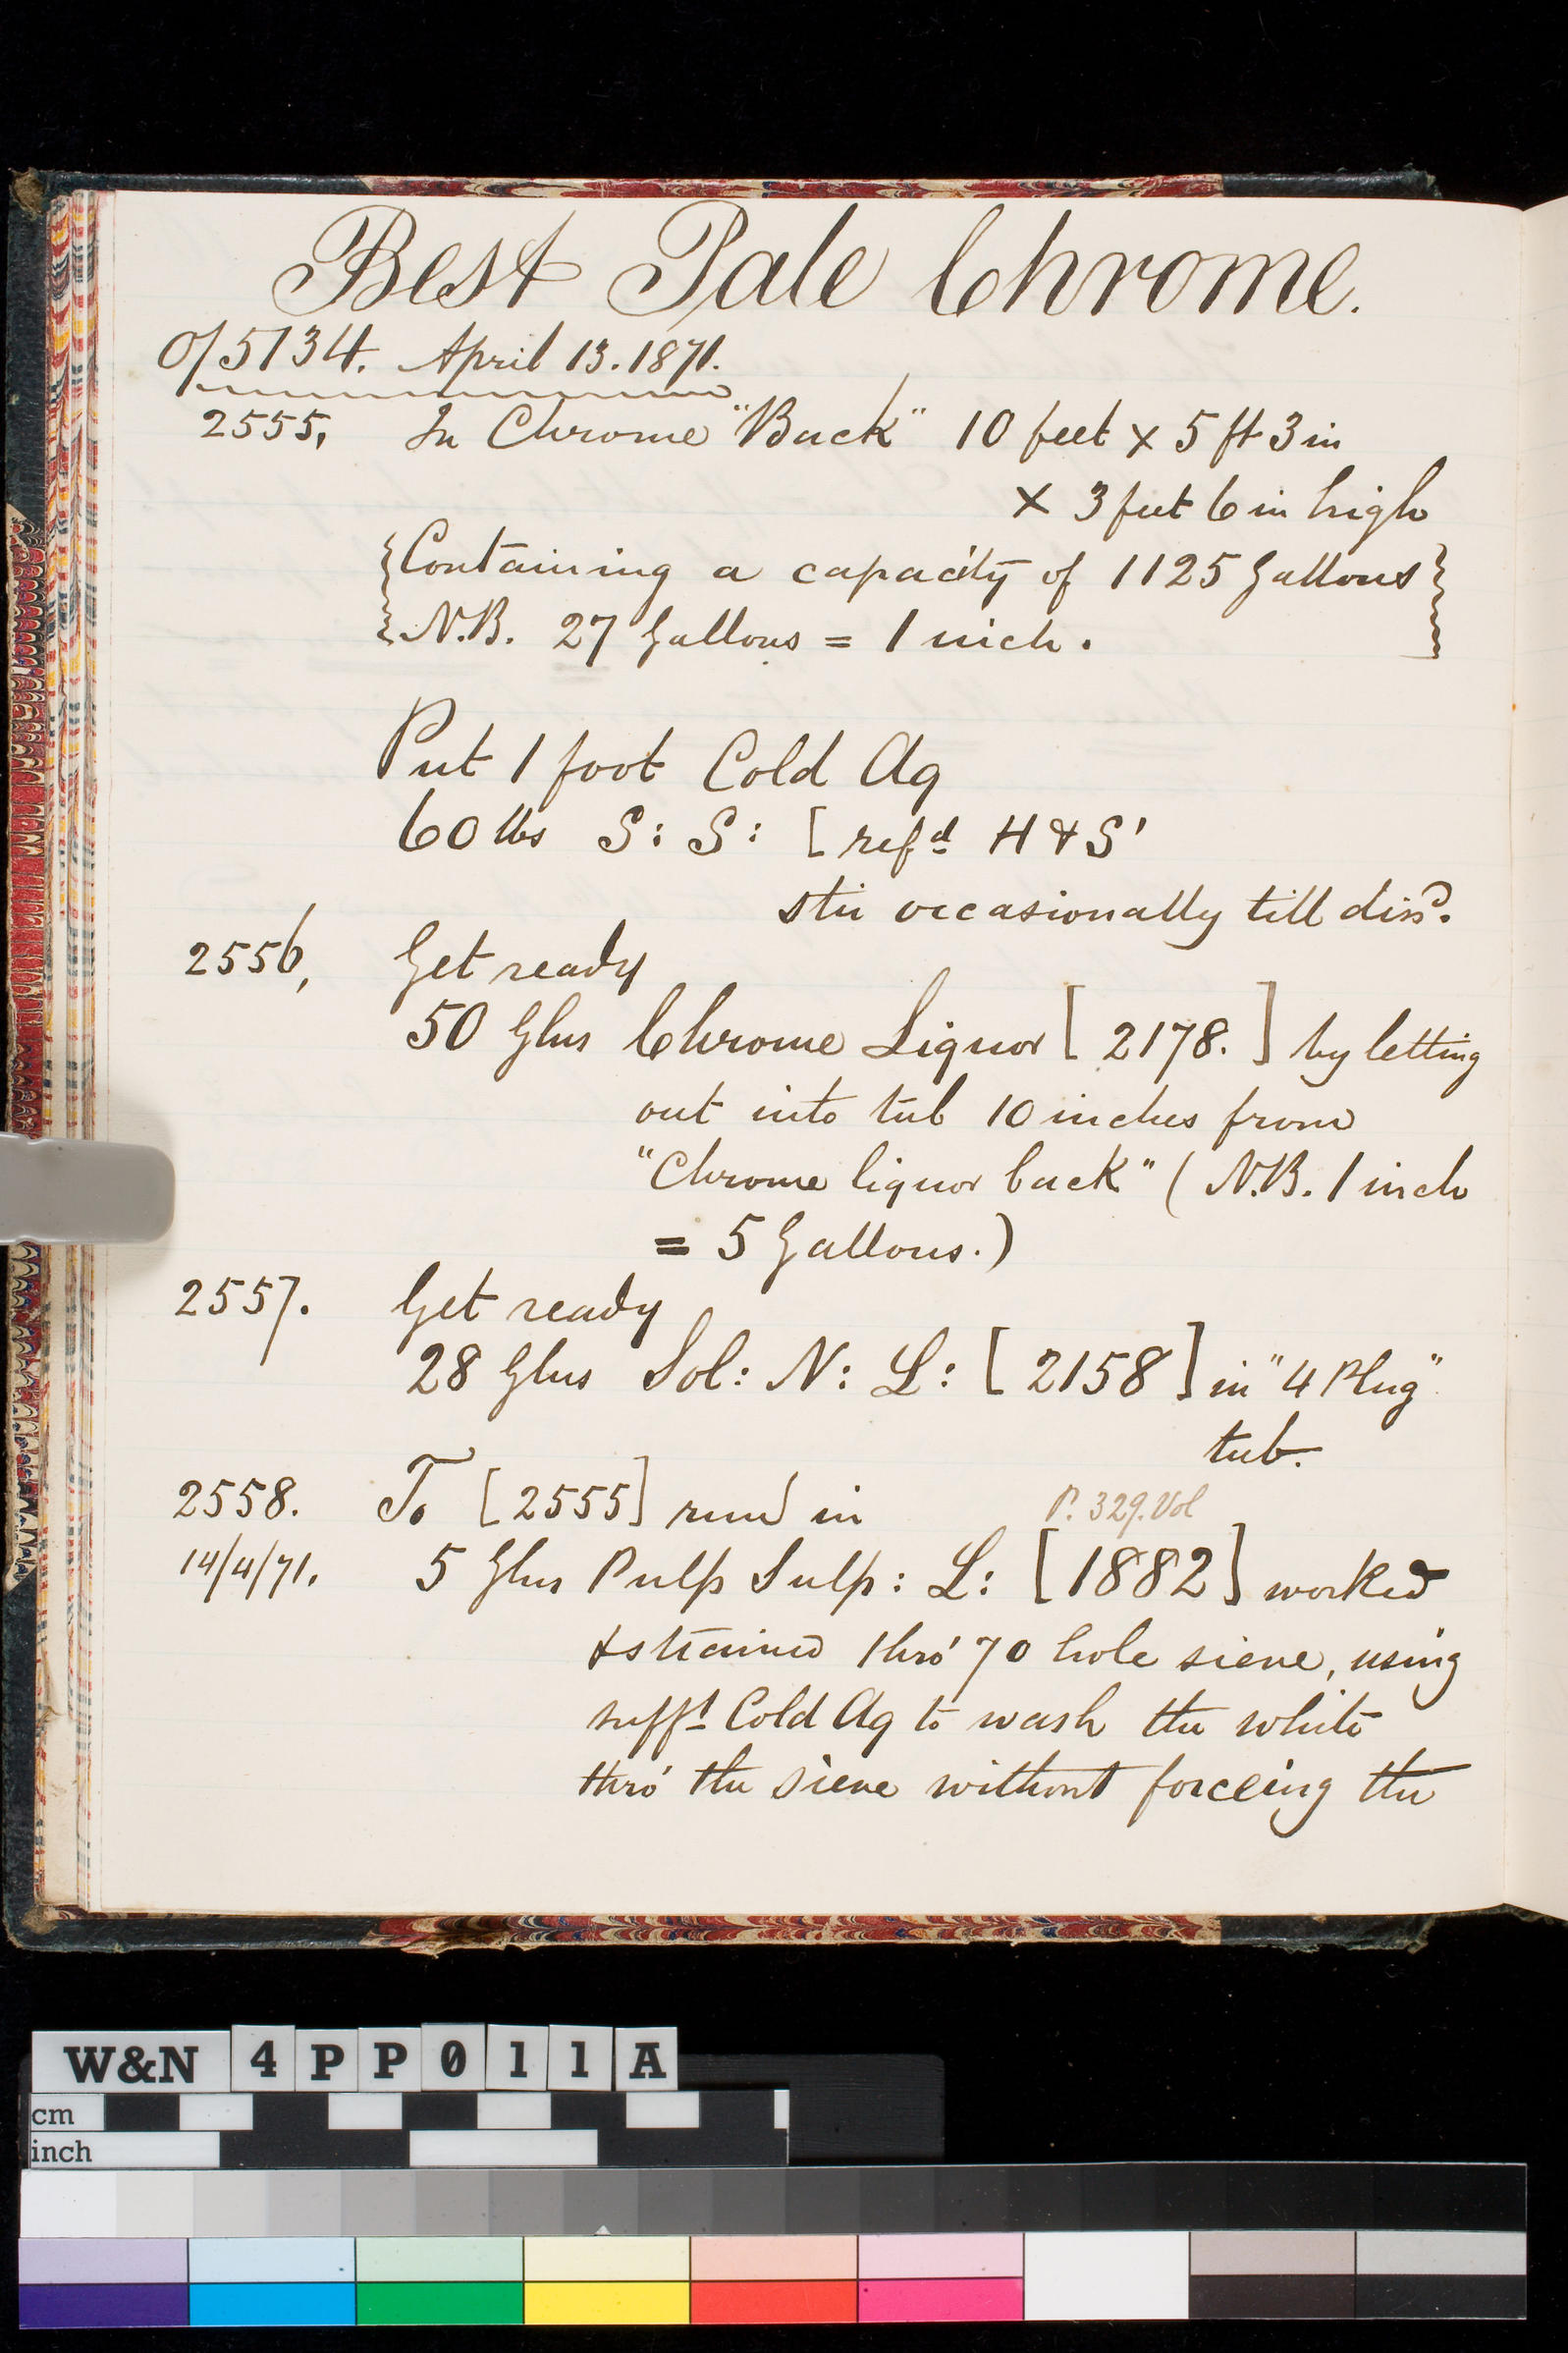 Best Pale Chrome.
O/5134. April 13. 1871.
2555, In Chrome "Back" 10 feet x 5 ft 3 in
x 3 feet 6 in high
{Containing a capacity of 1125 Gallons}
N.B. 27 Gallons = 1 inch.
Put 1 foot Cold Aq
60 lbs S: S: [ refd H & S'
stir occasionally till dissd.
2556, Get ready
50 Glns Chrome Liquor [ 2178. ] by letting
out into tub 10 inches from
"Chrome liquor back" ( N.B. 1 inch
= 5 Gallons.)
2557. Get ready
28 Glns Sol: N: L: [ 2158 ] in "4 Plug"
tub.
2558. To [2555] run in P. 329. Vol
14/4/71. 5 Glns Pulp Sulp: L: [1882] worked
& strained thro' 70 hole sieve, using
sufft Cold Aq to wash the white
thro' the sieve without forceing the
W&N 4PP011A
cm
inch